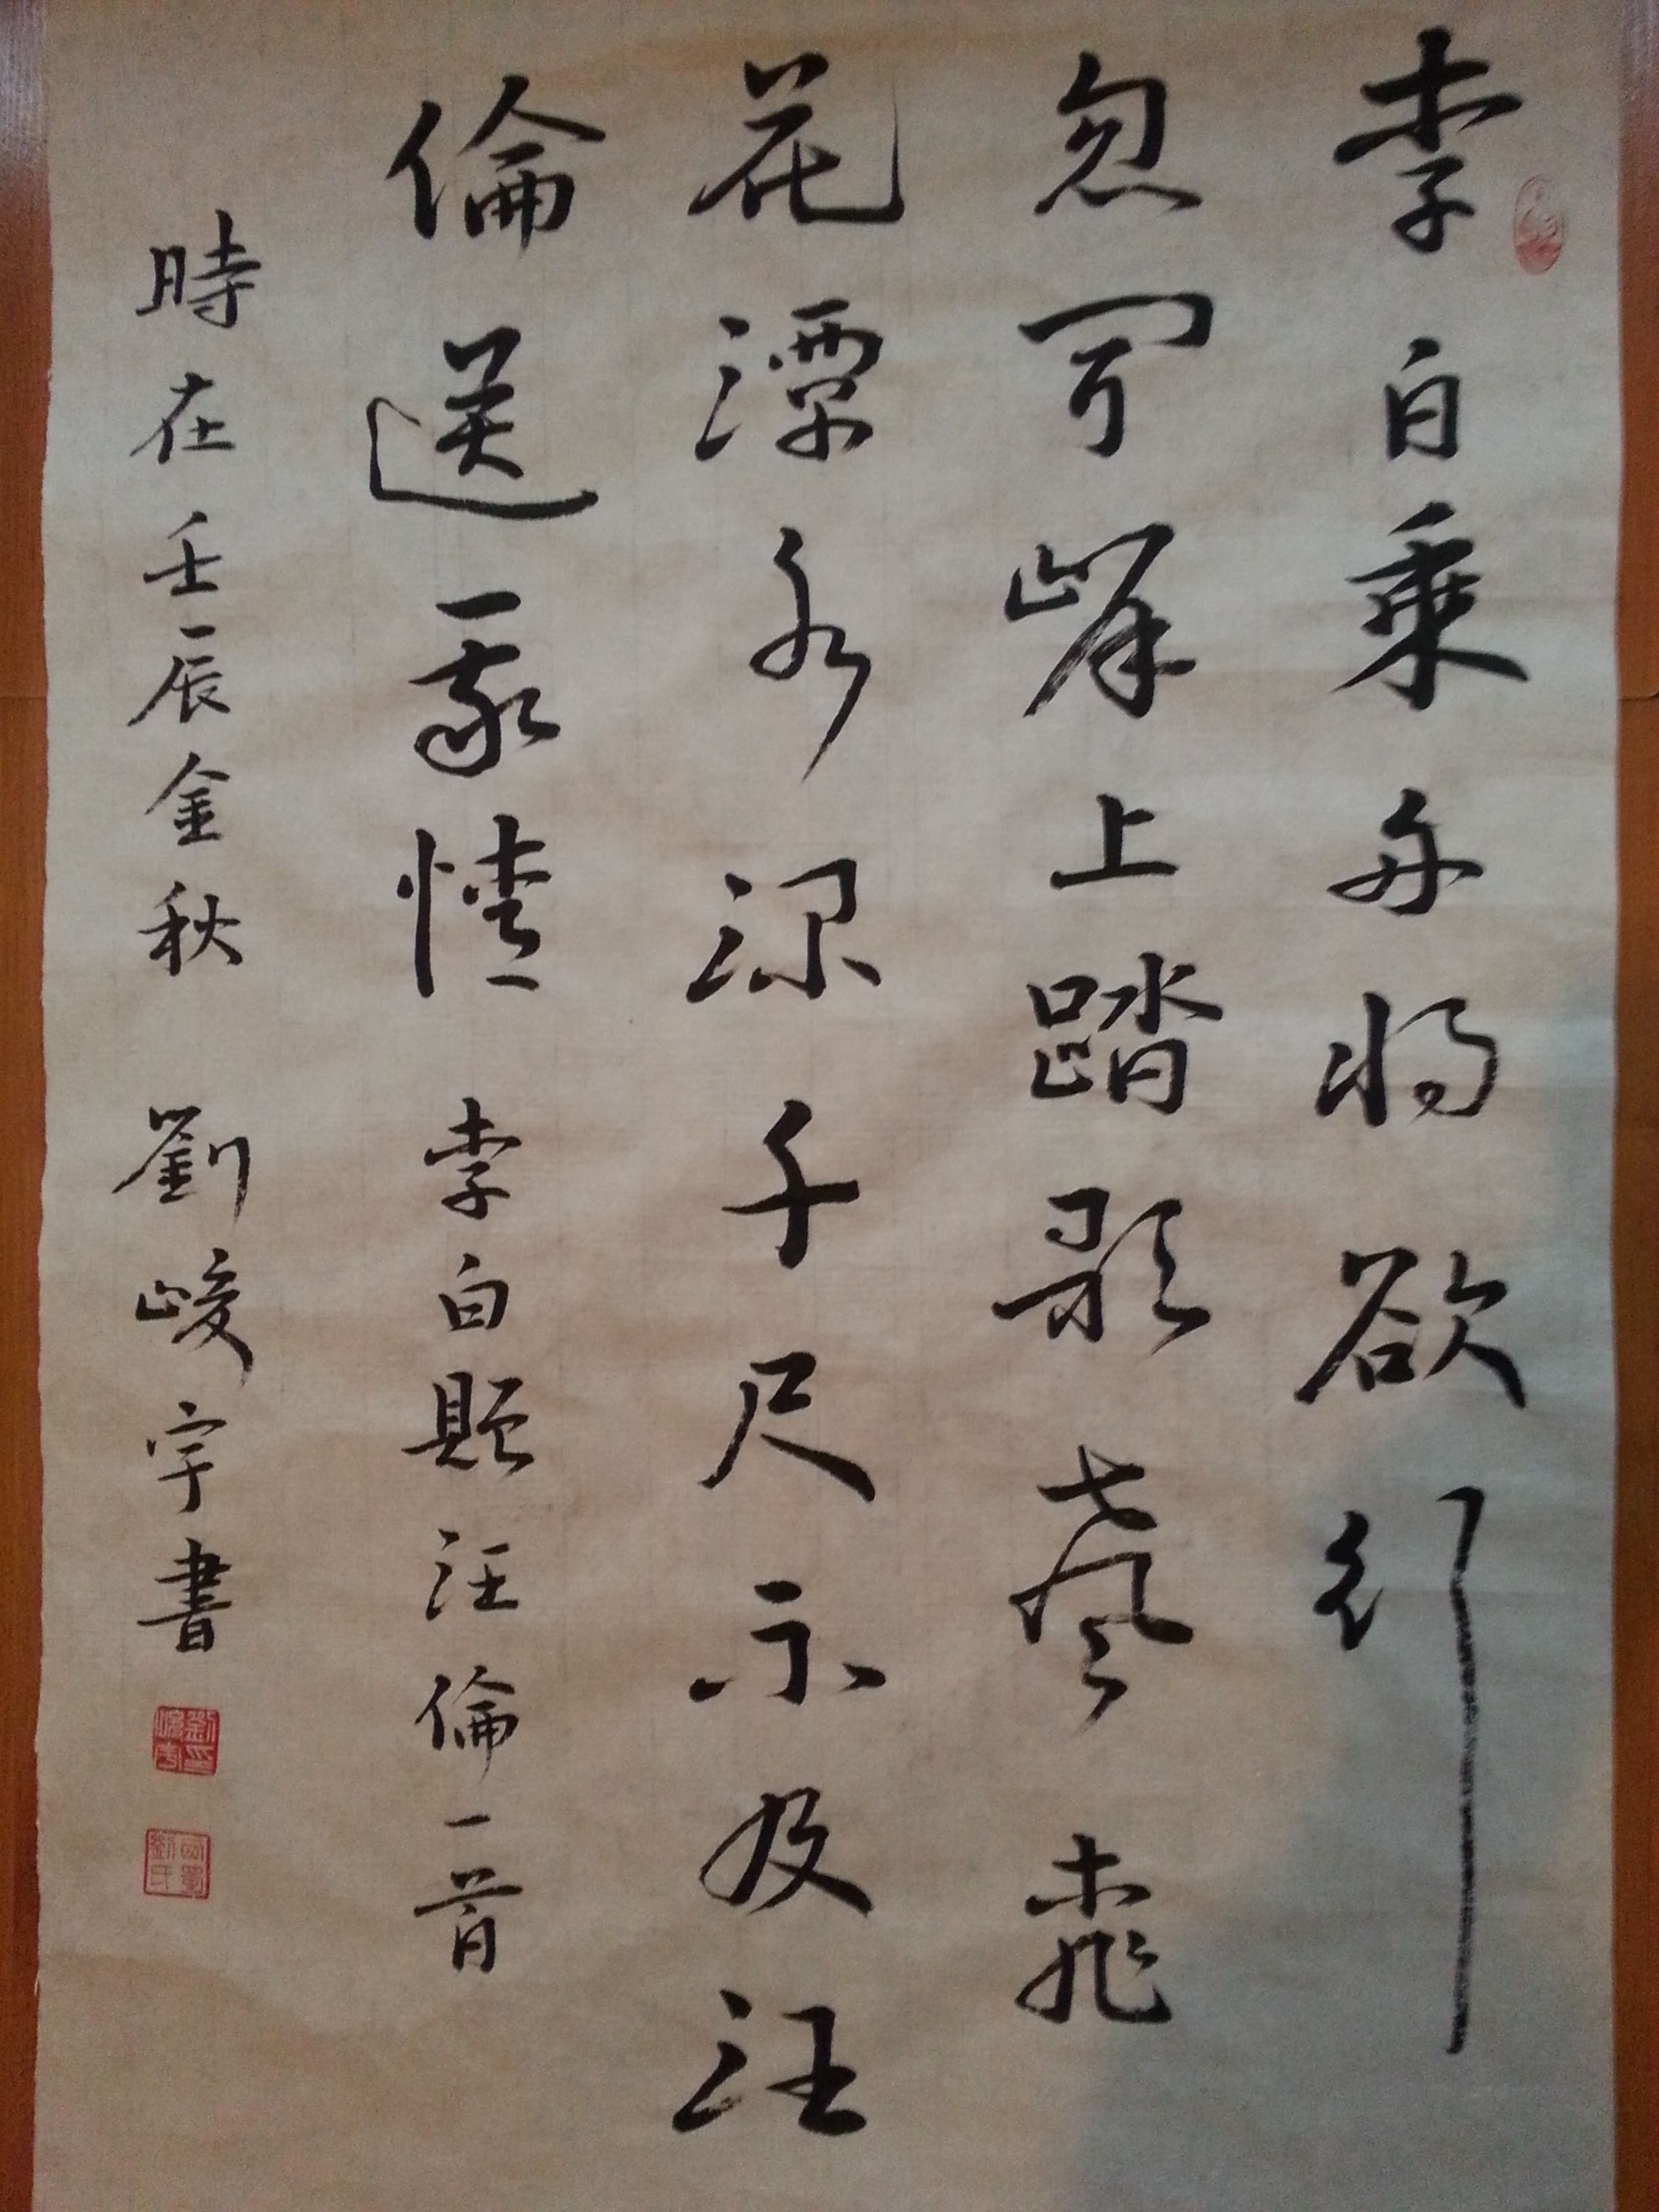 李白乘舟將欲行
忽聞岸上踏歌聲桃
花潭水深千尺不及汪
倫送我情 李白贈汪倫一首
時在壬辰金秋 劉峻宇書
劉印峻宇
西蜀劉氏